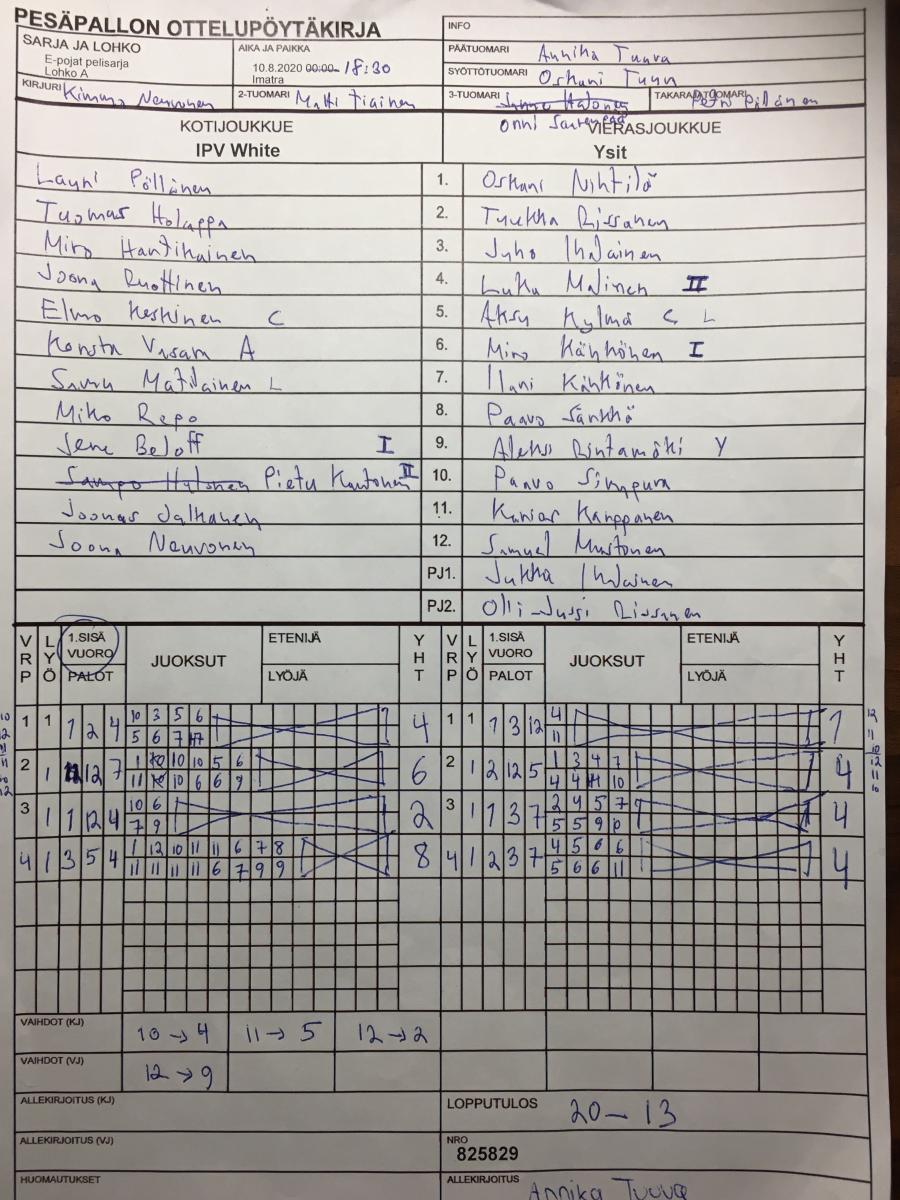 PESÄPALLON OTTELUPÖYTÄKIRJA
INFO
SARJA JA LOHKO
E-pojat pelisarja
Lohko A
AIKA JA PAIKKA
10.8.2020 00:00 18:30
Imatra
PÄÄTUOMARI Annika Tuuva
SYÖTTÖTUOMARI Oskari
KIRJURI Kimmo Neuvonen
2-TUOMARI Matti Tiainen
3-TUOMARI
TAKARAJATUOMARI Petri Pöllänen
Onni
KOTIJOUKKUE
IPV White
VIERASJOUKKUE
Ysit
Lauri Pöllänen 1. Oskari Nihtilä
Tuomas Holappa 2. Tuukka Rissanen
Miro Hantikainen 3. Juho Ihalainen
Joona Ruottinen 4. Luka Malinen II
Elmo Keskinen C 5. Aksu Kylmä C L
Konsta Vasara A 6. Miro Känkönen I
Savu Matilainen L 7. Ilari Känkönen
Miko Repo 8. Paavo Särkkä
Jene Beloff I 9. Aleksi Rintamäki Y
Sampo Hytönen Pietu Kautonen II 10. Paavo Simpura
Joonas Jalkanen 11. Kamppanen
Joona Neuvonen 12. Samuel Mustonen
PJ1. Jukka Ihalainen
PJ2. Olli-Jussi Rissanen
VRP LYÖ 1.SISÄ VUORO PALOT JUOKSUT ETENIJÄ LYÖJÄ YHT VRP LYÖ 1.SISÄ VUORO PALOT JUOKSUT ETENIJÄ LYÖJÄ YHT
1 1 1 2 4 10 3 5 6 4 1 1 1 3 12 4 1
5 6 7 11
2 1 12 7 1 10 10 10 5 6 6 2 1 2 12 5 1 3 4 7 4
11 10 10 6 6 9 4 4 11 10
3 1 1 12 4 10 6 2 3 1 1 3 7 2 4 5 7 4
7 9 5 5 9
4 1 3 5 4 1 12 10 11 11 6 7 8 8 4 1 2 3 7 4 5 6 6 4
11 11 11 11 6 7 9 9 5 6 6 11
VAIHDOT (KJ) 10→4 11→5 12→2
VAIHDOT (VJ) 12→9
ALLEKIRJOITUS (KJ)
LOPPUTULOS 20-13
ALLEKIRJOITUS (VJ)
NRO
825829
HUOMAUTUKSET
ALLEKIRJOITUS Annika Tuuva